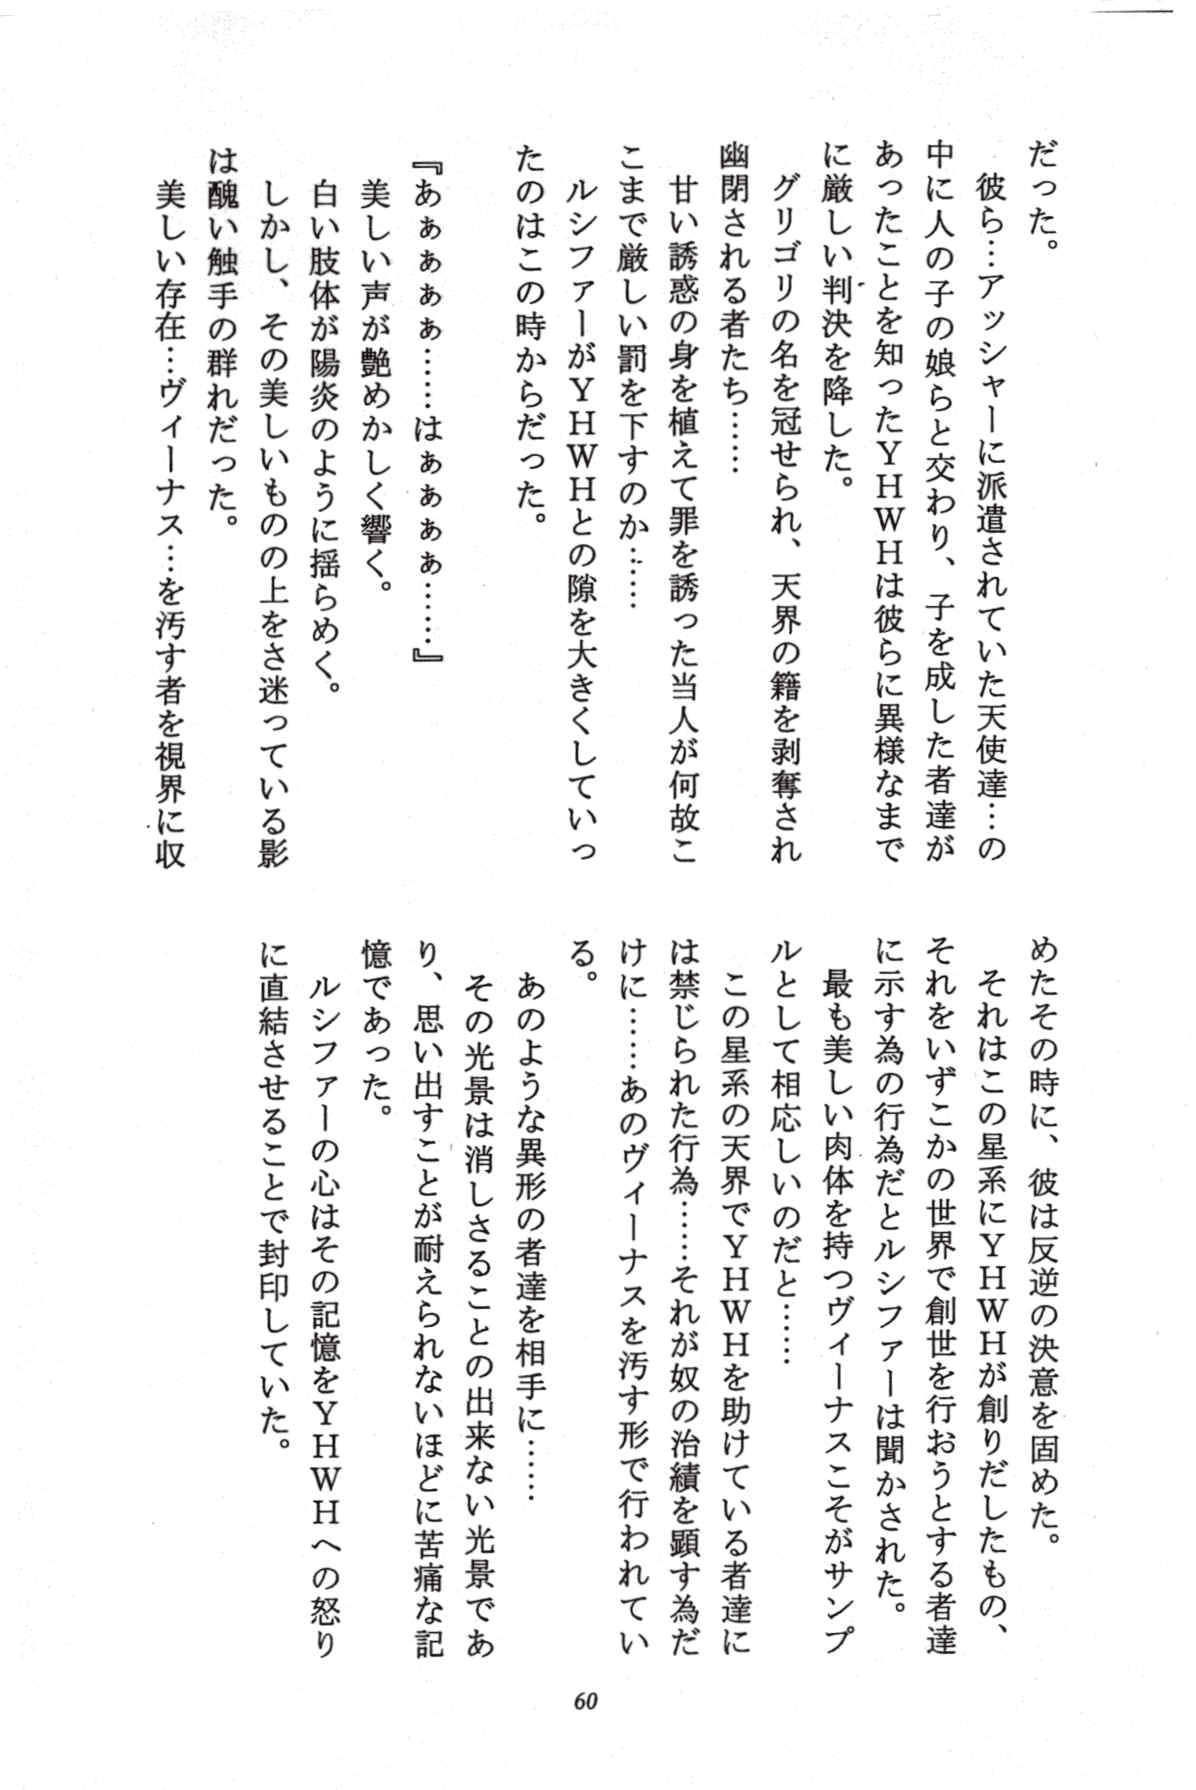 だった。
彼ら…アッシャーに派遣されていた天使達…の
中に人の子の娘らと交わり、子を成した者達が
あったことを知ったＹＨＷＨは彼らに異様なまで
に厳しい判決を降した。
グリゴリの名を冠せられ、天界の籍を剥奪され
幽閉される者たち……
甘い誘惑の身を植えて罪を誘った当人が何故こ
こまで厳しい罰を下すのか……
ルシファーがＹＨＷＨとの隙を大きくしていっ
たのはこの時からだった。
『あぁぁぁぁ……はぁぁぁぁ……』
美しい声が艶めかしく響く。
白い肢体が陽炎のように揺らめく。
しかし、その美しいものの上をさ迷っている影
は醜い触手の群れだった。
美しい存在…ヴィーナス…を汚す者を視界に収
めたその時に、彼は反逆の決意を固めた。
それはこの星系にＹＨＷＨが創りだしたもの、
それをいずこかの世界で創世を行おうとする者達
に示す為の行為だとルシファーは聞かされた。
最も美しい肉体を持つヴィーナスこそがサンプ
ルとして相応しいのだと……
この星系の天界でＹＨＷＨを助けている者達に
は禁じられた行為……それが奴の治績を顕す為だ
けに……あのヴィーナスを汚す形で行われてい
る。
あのような異形の者達を相手に……
その光景は消しさることの出来ない光景であ
り、思い出すことが耐えられないほどに苦痛な記
憶であった。
ルシファーの心はその記憶をＹＨＷＨへの怒り
に直結させることで封印していた。
60